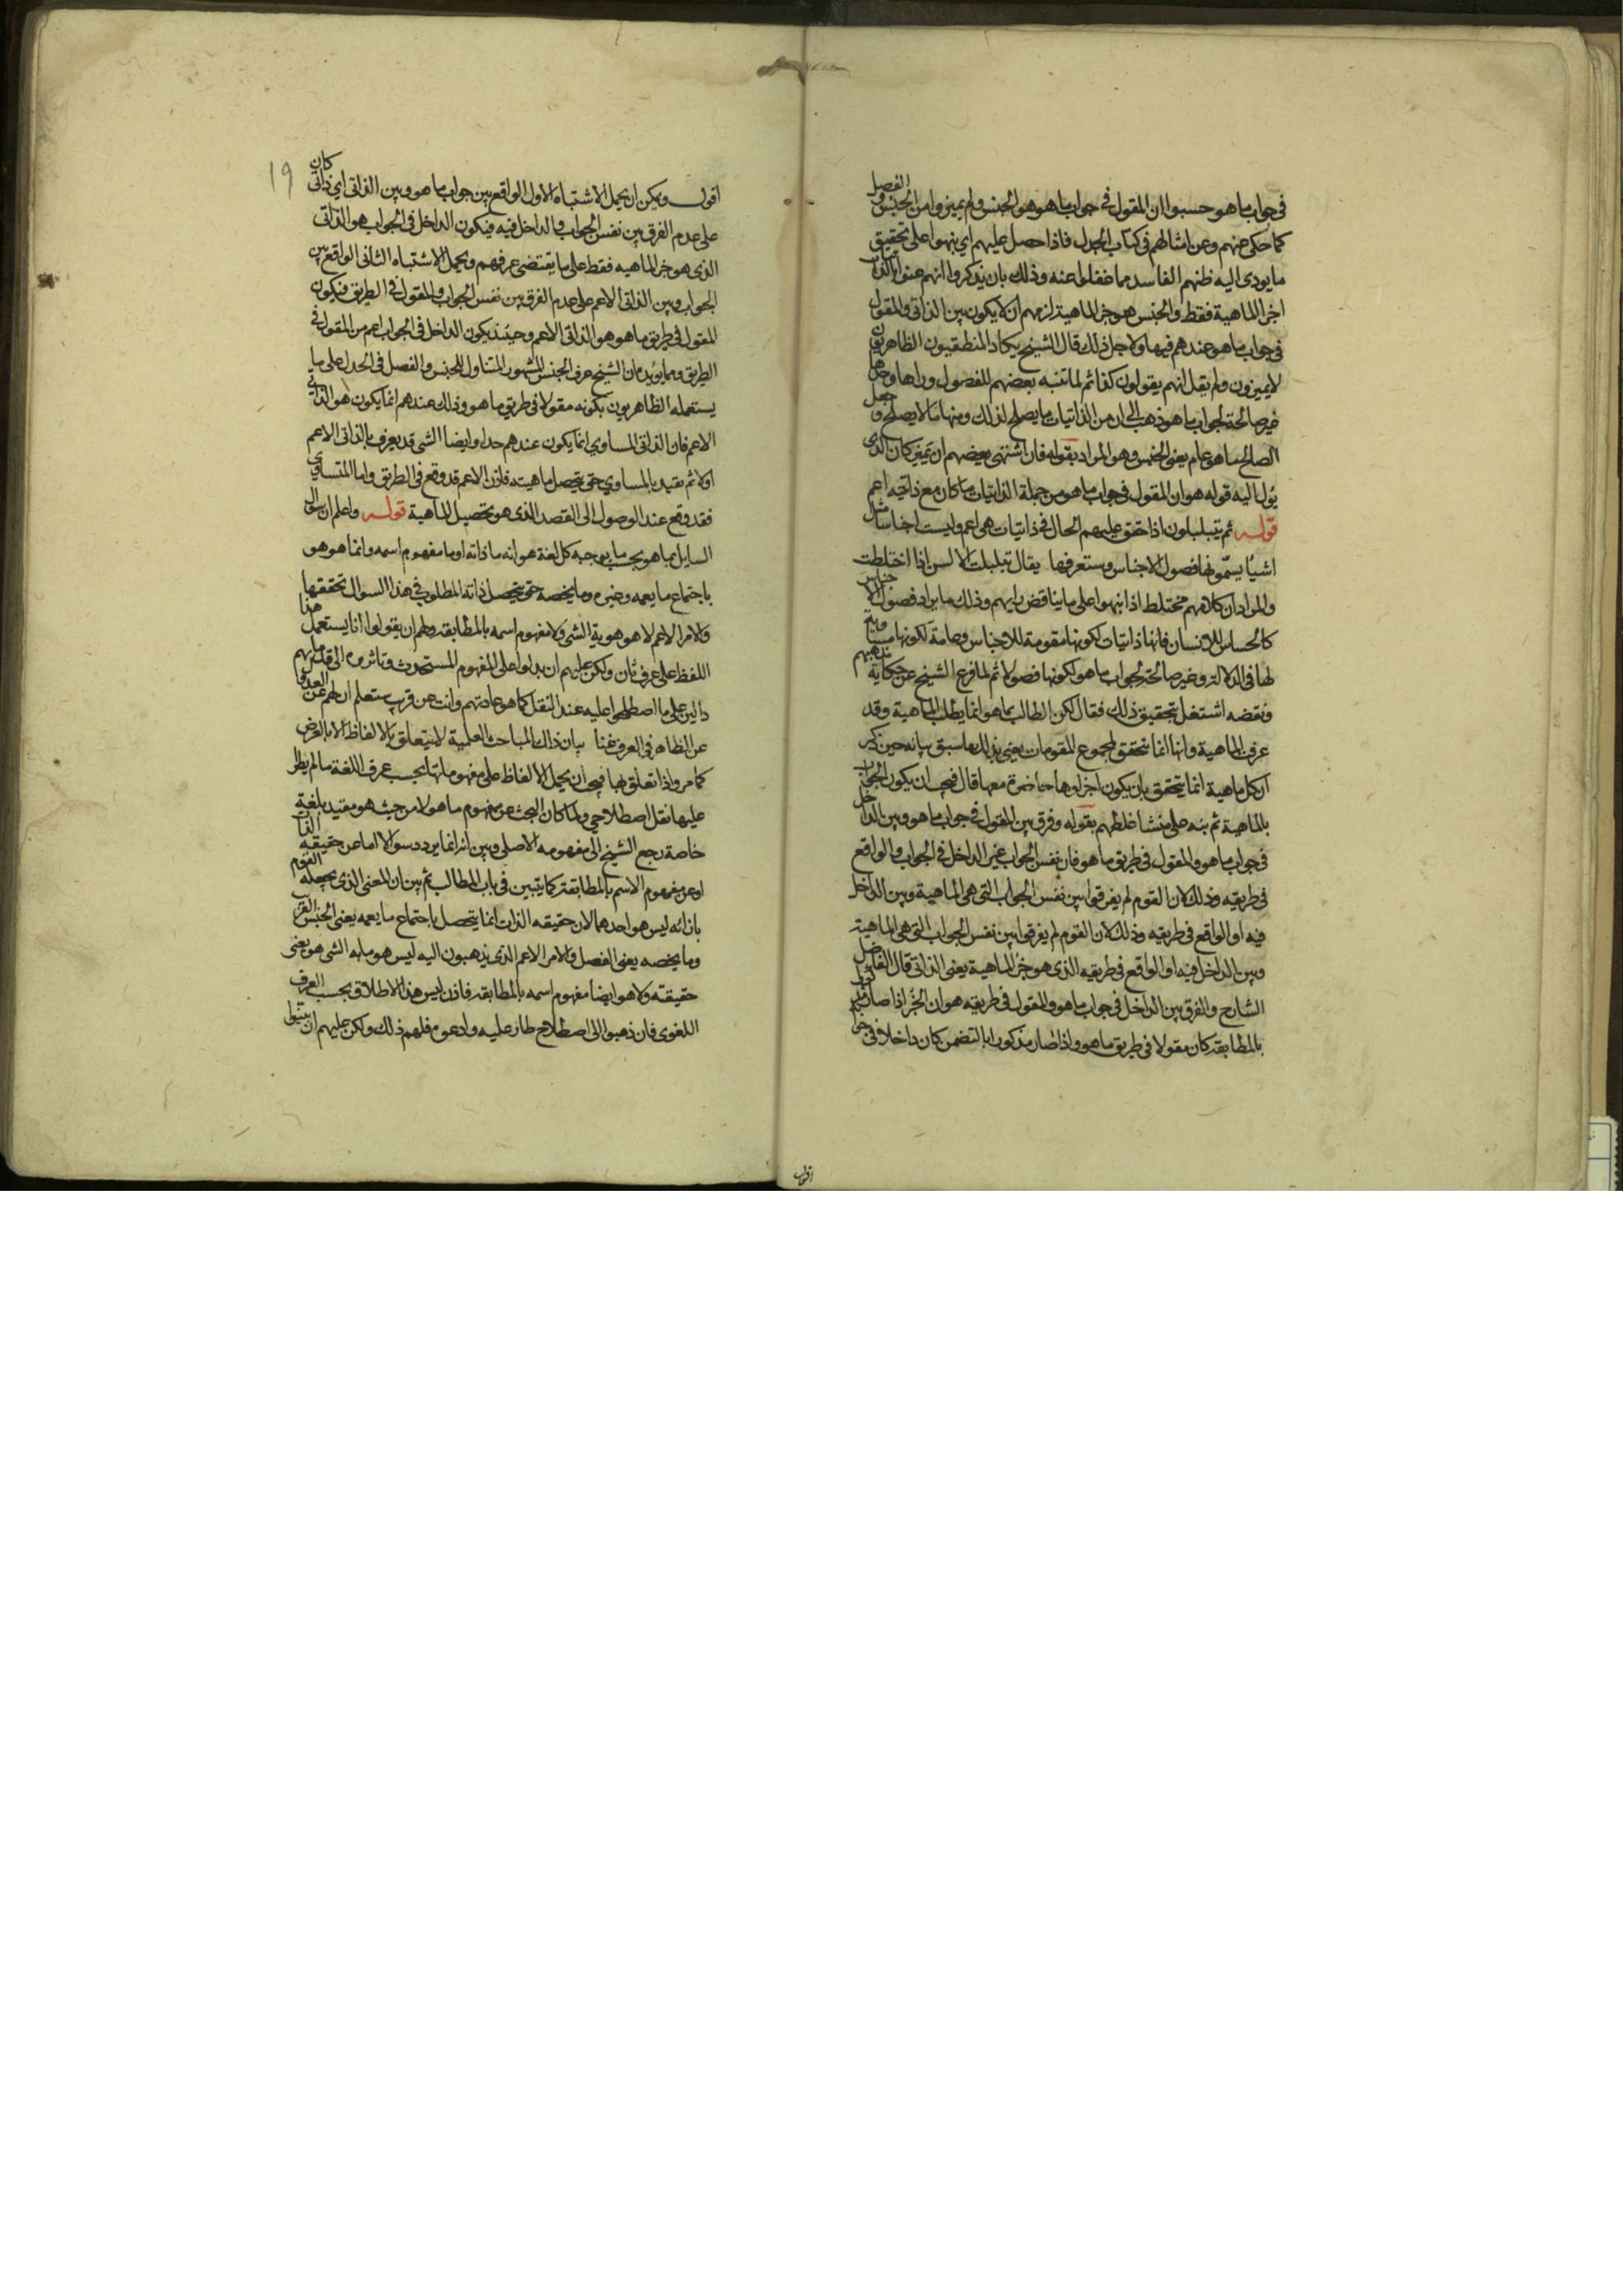 في جواب ما هو حسبوا ان المقول في جواب ما هو هو الجنس ولم يميزوا من الجنس والفصل
كما حكى عنهم وعن امثالهم في كتاب الجدل فاذا حصل عليهم اي ينبهوا على تحقيق
ما يودى اليه ظنهم الفاسد مما غفلوا عنه وذلك بان يذكروا انهم عنوا بالذاتي
اجزا الماهية فقط والجنس هو جز الماهية لزمهم ان لا يكون بين الذاتي والمقول
في جواب ما هو عندهم فيها ولاجل ذلك قال الشيخ يكاد المنطقيون الظاهريون
لا يميزون ولم يقل انهم يقولون كذا ثم لما تنبه بعضهم للفصول وراها وحدها
غير صالحة لجواب ما هو ذهب الى ان من الذاتيات ما يصلح لذلك ومنها ما لا يصلح وجعل
الصالح ما هو عام يعنى الجنس وهو المراد بقوله فان اشتهى بعضهم ان يميز كان الذى
يؤل اليه قوله هو ان المقول في جواب ما هو من جملة الذاتيات ما كان مع ذاتيته اعم
قوله ثم يتبلبلون اذا حقق عليهم الحال في ذاتيات هي اعم وليست اجناسا مثل
اشيا يسمونها فصول الاجناس وستعرفها يقال تبلبلت الالسن اذا اختلطت
والمراد ان كلامهم مختلط اذا نبهوا على ما يناقض رايهم وذلك ما يراد فصول الاجناس
كالحساس للانسان فانها ذاتيات لكونها مقومة للاجناس وعامة لكونها مساوية
لها في الدلالة وغير صالحة لجواب ما هو لكونها فصولا ثم لما فرغ الشيخ عن حكاية مذهبهم
ونقضه اشتغل بتحقيق ذلك فقال لكن الطالب بما هو انما يطلب الماهية وقد
عرفت الماهية وانها انما تتحقق بمجموع المقومات يعني بذلك ما سبق بيانه حين ذكر
ان كل ماهية انما يتحقق بان يكون اجزاوها حاضرة معها قال فيجب ان يكون الجواب
بالماهية ثم بنه على منشا غلطهم بقوله وفرق بين المقول في جواب ما هو وبين الداخل
في جواب ما هو والمقول في طريق ما هو فان نفس الجواب غير الداخل في الجواب والواقع
في طريقه وذلك لان القوم لم يفرقوا بين نفس الجواب التي هي الماهية وبين الداخل
فيه او الواقع في طريقه وذلك لان القوم لم يفرقوا بين نفس الجواب التي هي الماهية
وبين الداخل فيه او الواقع في طريقه الذى هو جز الماهية يعنى الذاتي قال الفاضل
الشارح والفرق بين الداخل في جواب ما هو والمقول في طريقه هو ان الجز اذا صار مذكورا
بالمطابقة كان مقولا في طريق ما هو واذا صار مذكورا بالتضمن كان داخلا في جوا
اقول
19
اقول ويمكن ان يحمل الاشتباه الاول الواقع بين جواب ما هو وبين الذاتي اي ذاتي كان
على عدم الفرق بين نفس الجواب والداخل فيه فيكون الداخل في الجواب هو الذاتي
الذى هو جز الماهيه فقط على ما يقتضى عرفهم ويحمل الاشتباه الثاني الواقع بين
الجواب وبين الذاتي الاعم على عدم الفرق بين نفس الجواب والمقول في الطريق فيكون
المقول في طريق ما هو هو الذاتي الاعم وحينئذ يكون الداخل في الجواب اعم من المقول في
الطريق ومما يؤيده ان الشيخ عرف الجنس المشهور المتناول للجنس والفصل في الجدل على ما
يستعمله الظاهريون بكونه مقولا في طريق ما هو وذلك عندهم انما يكون هو الذاتي
الاعم فان الذاتي المساوي انما يكون عندهم حدا وايضا الشي قد يعرف بالذاتي الاعم
اولا ثم يقيد بالمساوي حتى يتحصل ماهيته فاذن الاعم قد وقع في الطريق واما المتساوي
فقد وقع عند الوصول الى القصد الذى هو تحصيل الماهية قوله واعلم ان سؤال
السايل بما هو بحسب ما يوجبه كل لغة هو انه ما ذاته او ما مفهوم اسمه وانما هو هو
باجتماع ما يعمه وغيره وما يخصه حتى يتحصل ذاته المطلوب في هذا السوال تحققها
والامر الاعم لا هو هوية الشي ولا مفهوم اسمه بالمطابقه ولهم ان يقولوا انا نستعمل هذا
اللفظ على عرف ثان ولكن عليهم ان يدلوا على المفهوم المستحدث وياثروه الى قدمائهم
دالين على ما اصطلحوا عليه عند النقل كما هو عادتهم وانت عن قريب ستعلم ان لهم عن العدول
عن الظاهر في العرف غنا بيان ذلك المباحث العلمية لا يتعلق بالالفاظ الا بالعرض
كما مر واذا تعلق بها فيجب ان يحمل الالفاظ على مفهوماتها بحسب عرف اللغة ما لم يطر
عليها نقل اصطلاحي ولما كان البحث عن مفهوم ما هو لا من حيث هو مقيد بلغة
خاصة رجع الشيخ الى مفهومه الاصلي وبين انه انما يورد سوالا اما عن حقيقه الذات
او عن مفهوم الاسم بالمطابقة كما يتبين في باب المطالب ثم بين ان المعنى الذى يجعله القوم
بازائه ليس هو احدهما لان حقيقه الذات انما يتحصل باجتماع ما يعمه يعنى الجنس القريب
وما يخصه يعنى الفصل والامر الاعم الذى يذهبون اليه ليس هو ما به الشي هو يعني
حقيقته ولا هو ايضا مفهوم اسمه بالمطابقه فاذن ليس هذا الاطلاق بحسب العرف
اللغوي فان ذهبوا الى اصطلاح طار عليه وادعوه فلهم ذلك ولكن عليهم ان يبينوا